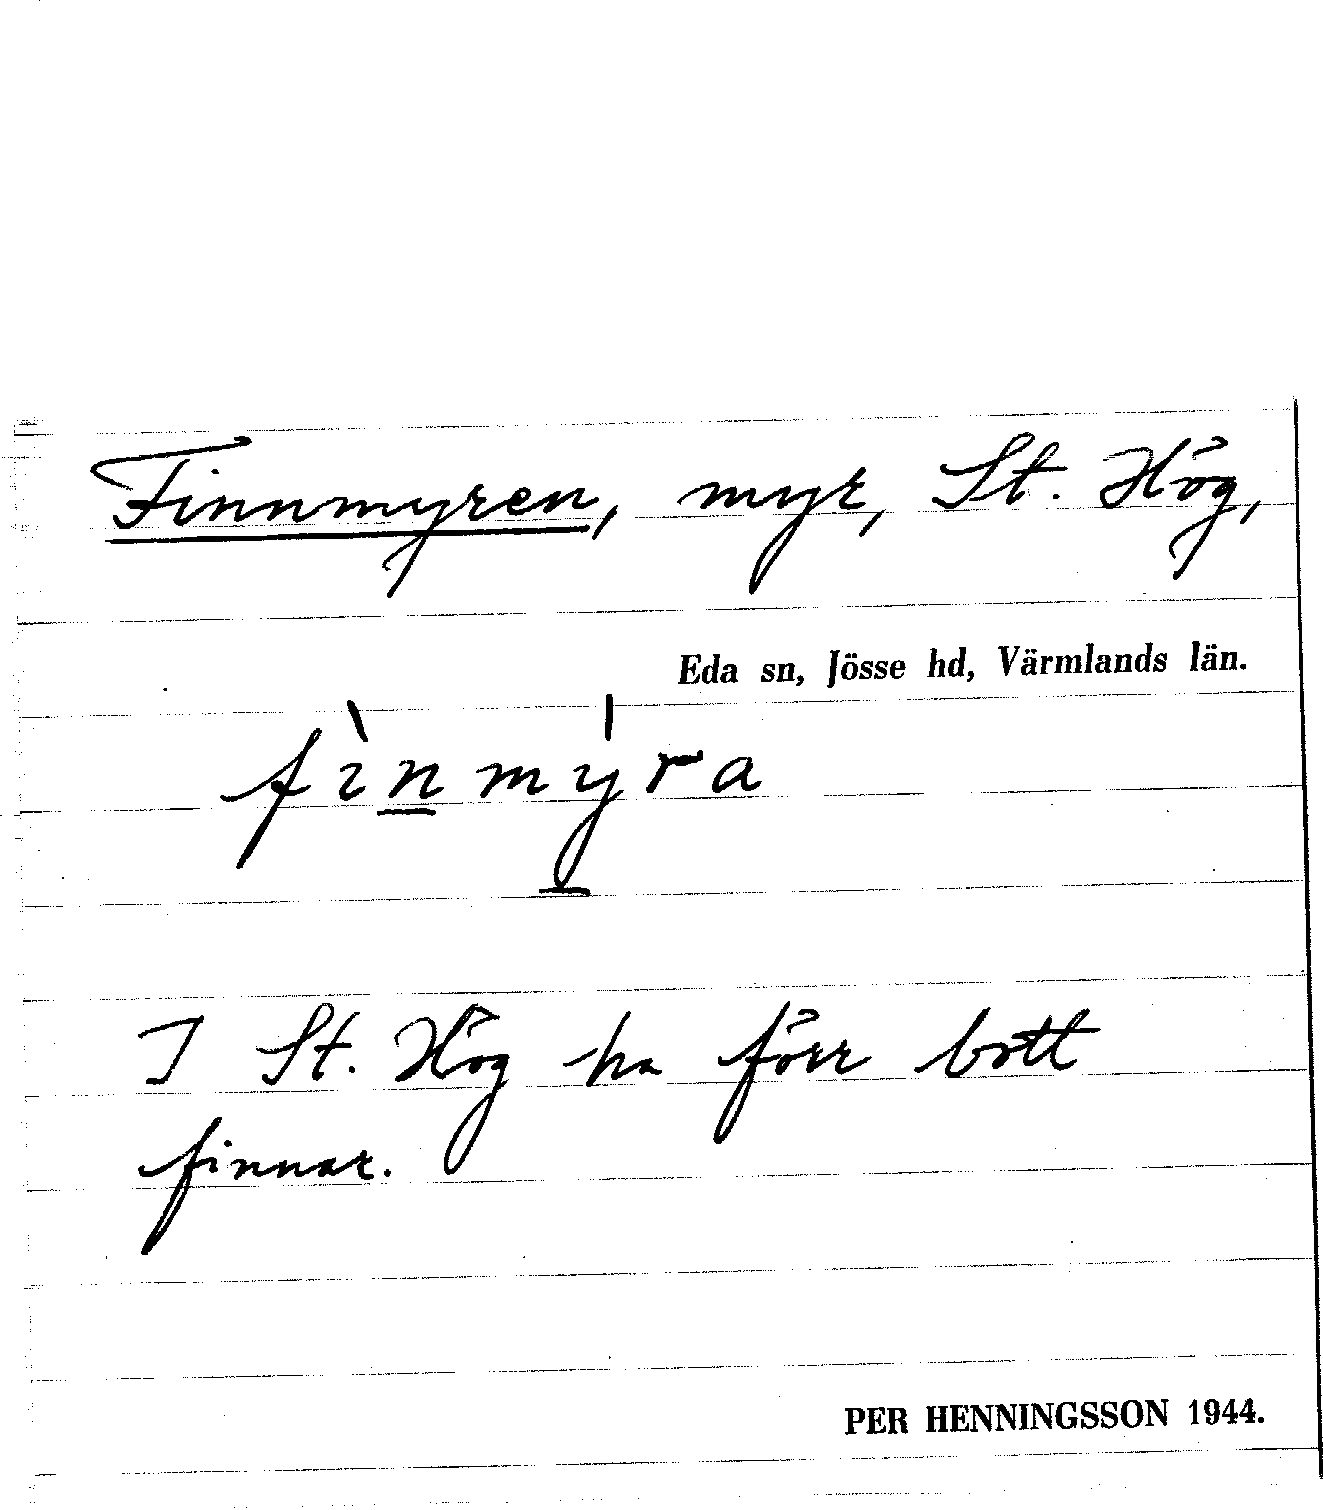 Finnmyren, myr, St. Hög,
Eda sn, Jösse hd, Värmlands län.
fìnmýra
I St. Hög ha förr bott
finnar.
PER HENNINGSSON 1944.